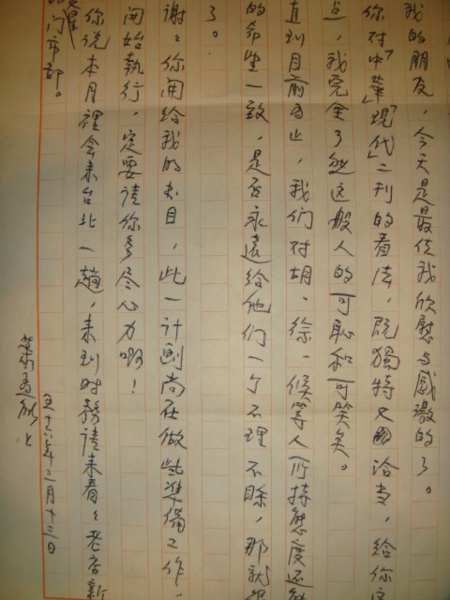 我的朋友，今天是最使我欣慰与感激的了。
你对中「華」「現代」二刊的看法，既獨特又恰当，給你这
点，我完全了然这般人的可恥和可笑矣。
直到目前为止，我们对胡、徐、候等人所持態度还
的希望一致，是否永遠给他们一个不理不睬，那就
了。
謝々你開给我的书目，此一计劃尚在做些準備工作，
開始執行，一定要請你多尽心力啊！
你说本月裡会来台北一趟，来到时務請来看々老店新
的门市部。
上
五十六年二月十三日